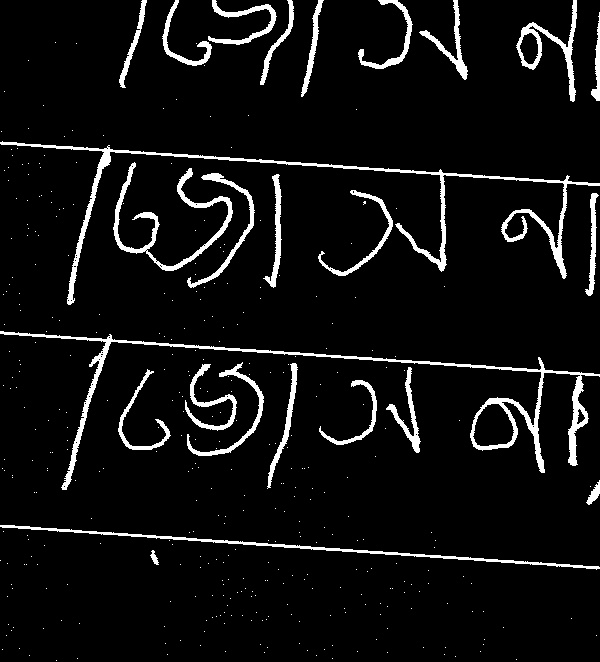 জোসনা
জোসনা
জোসনা